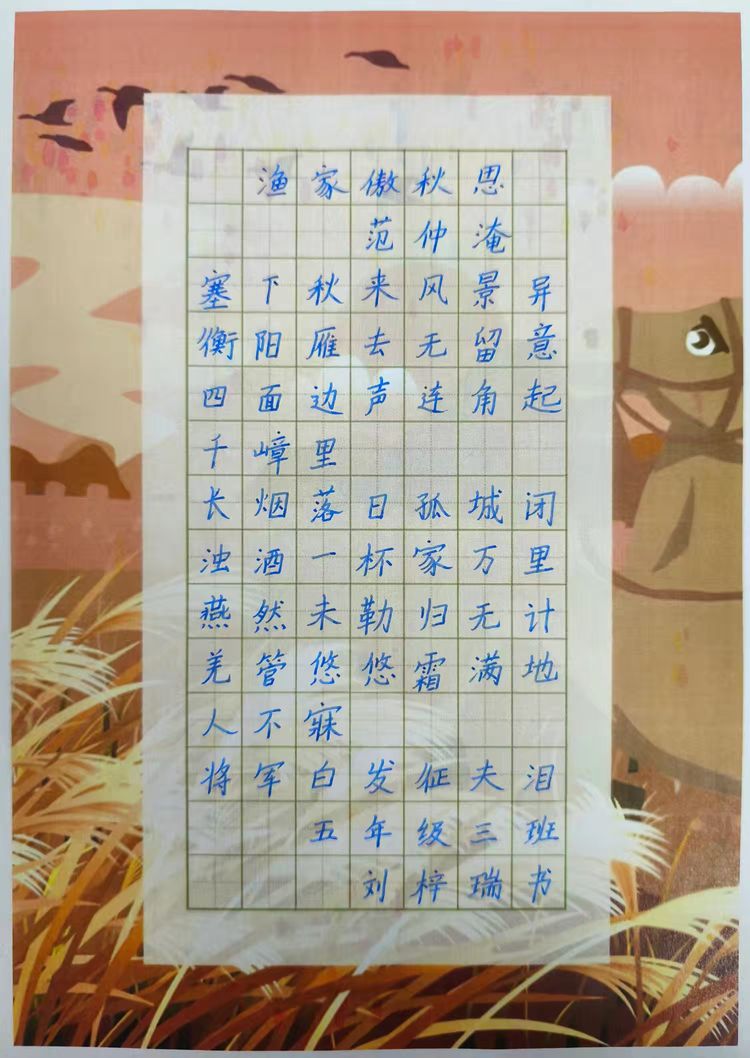 渔家傲秋思
范仲淹
塞下秋来风景异
衡阳雁去无留意
四面边声连角起
千嶂里
长烟落日孤城闭
浊酒一杯家万里
燕然未勒归无计
羌管悠悠霜满地
人不寐
将军白发征夫泪
五年级三班
刘梓瑞书